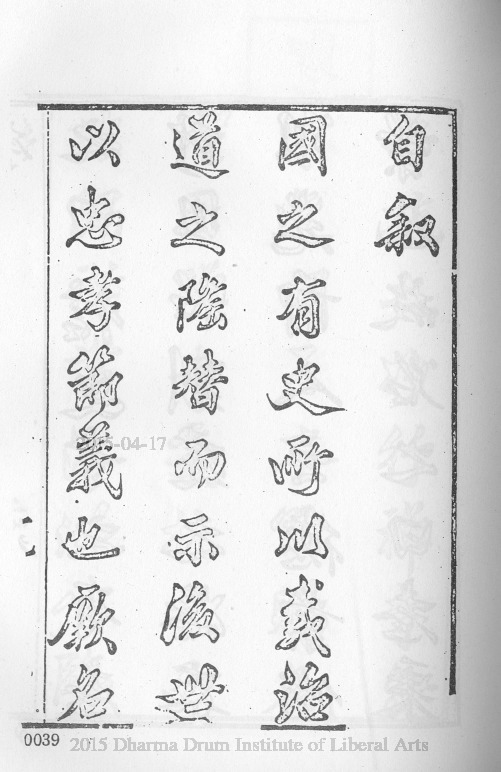 自叙
國之有史所以載治
道之隆替而示後世
以忠孝節義也厥名
2015-04-17
0039 2015 Dharma Drum Institute of Liberal Arts